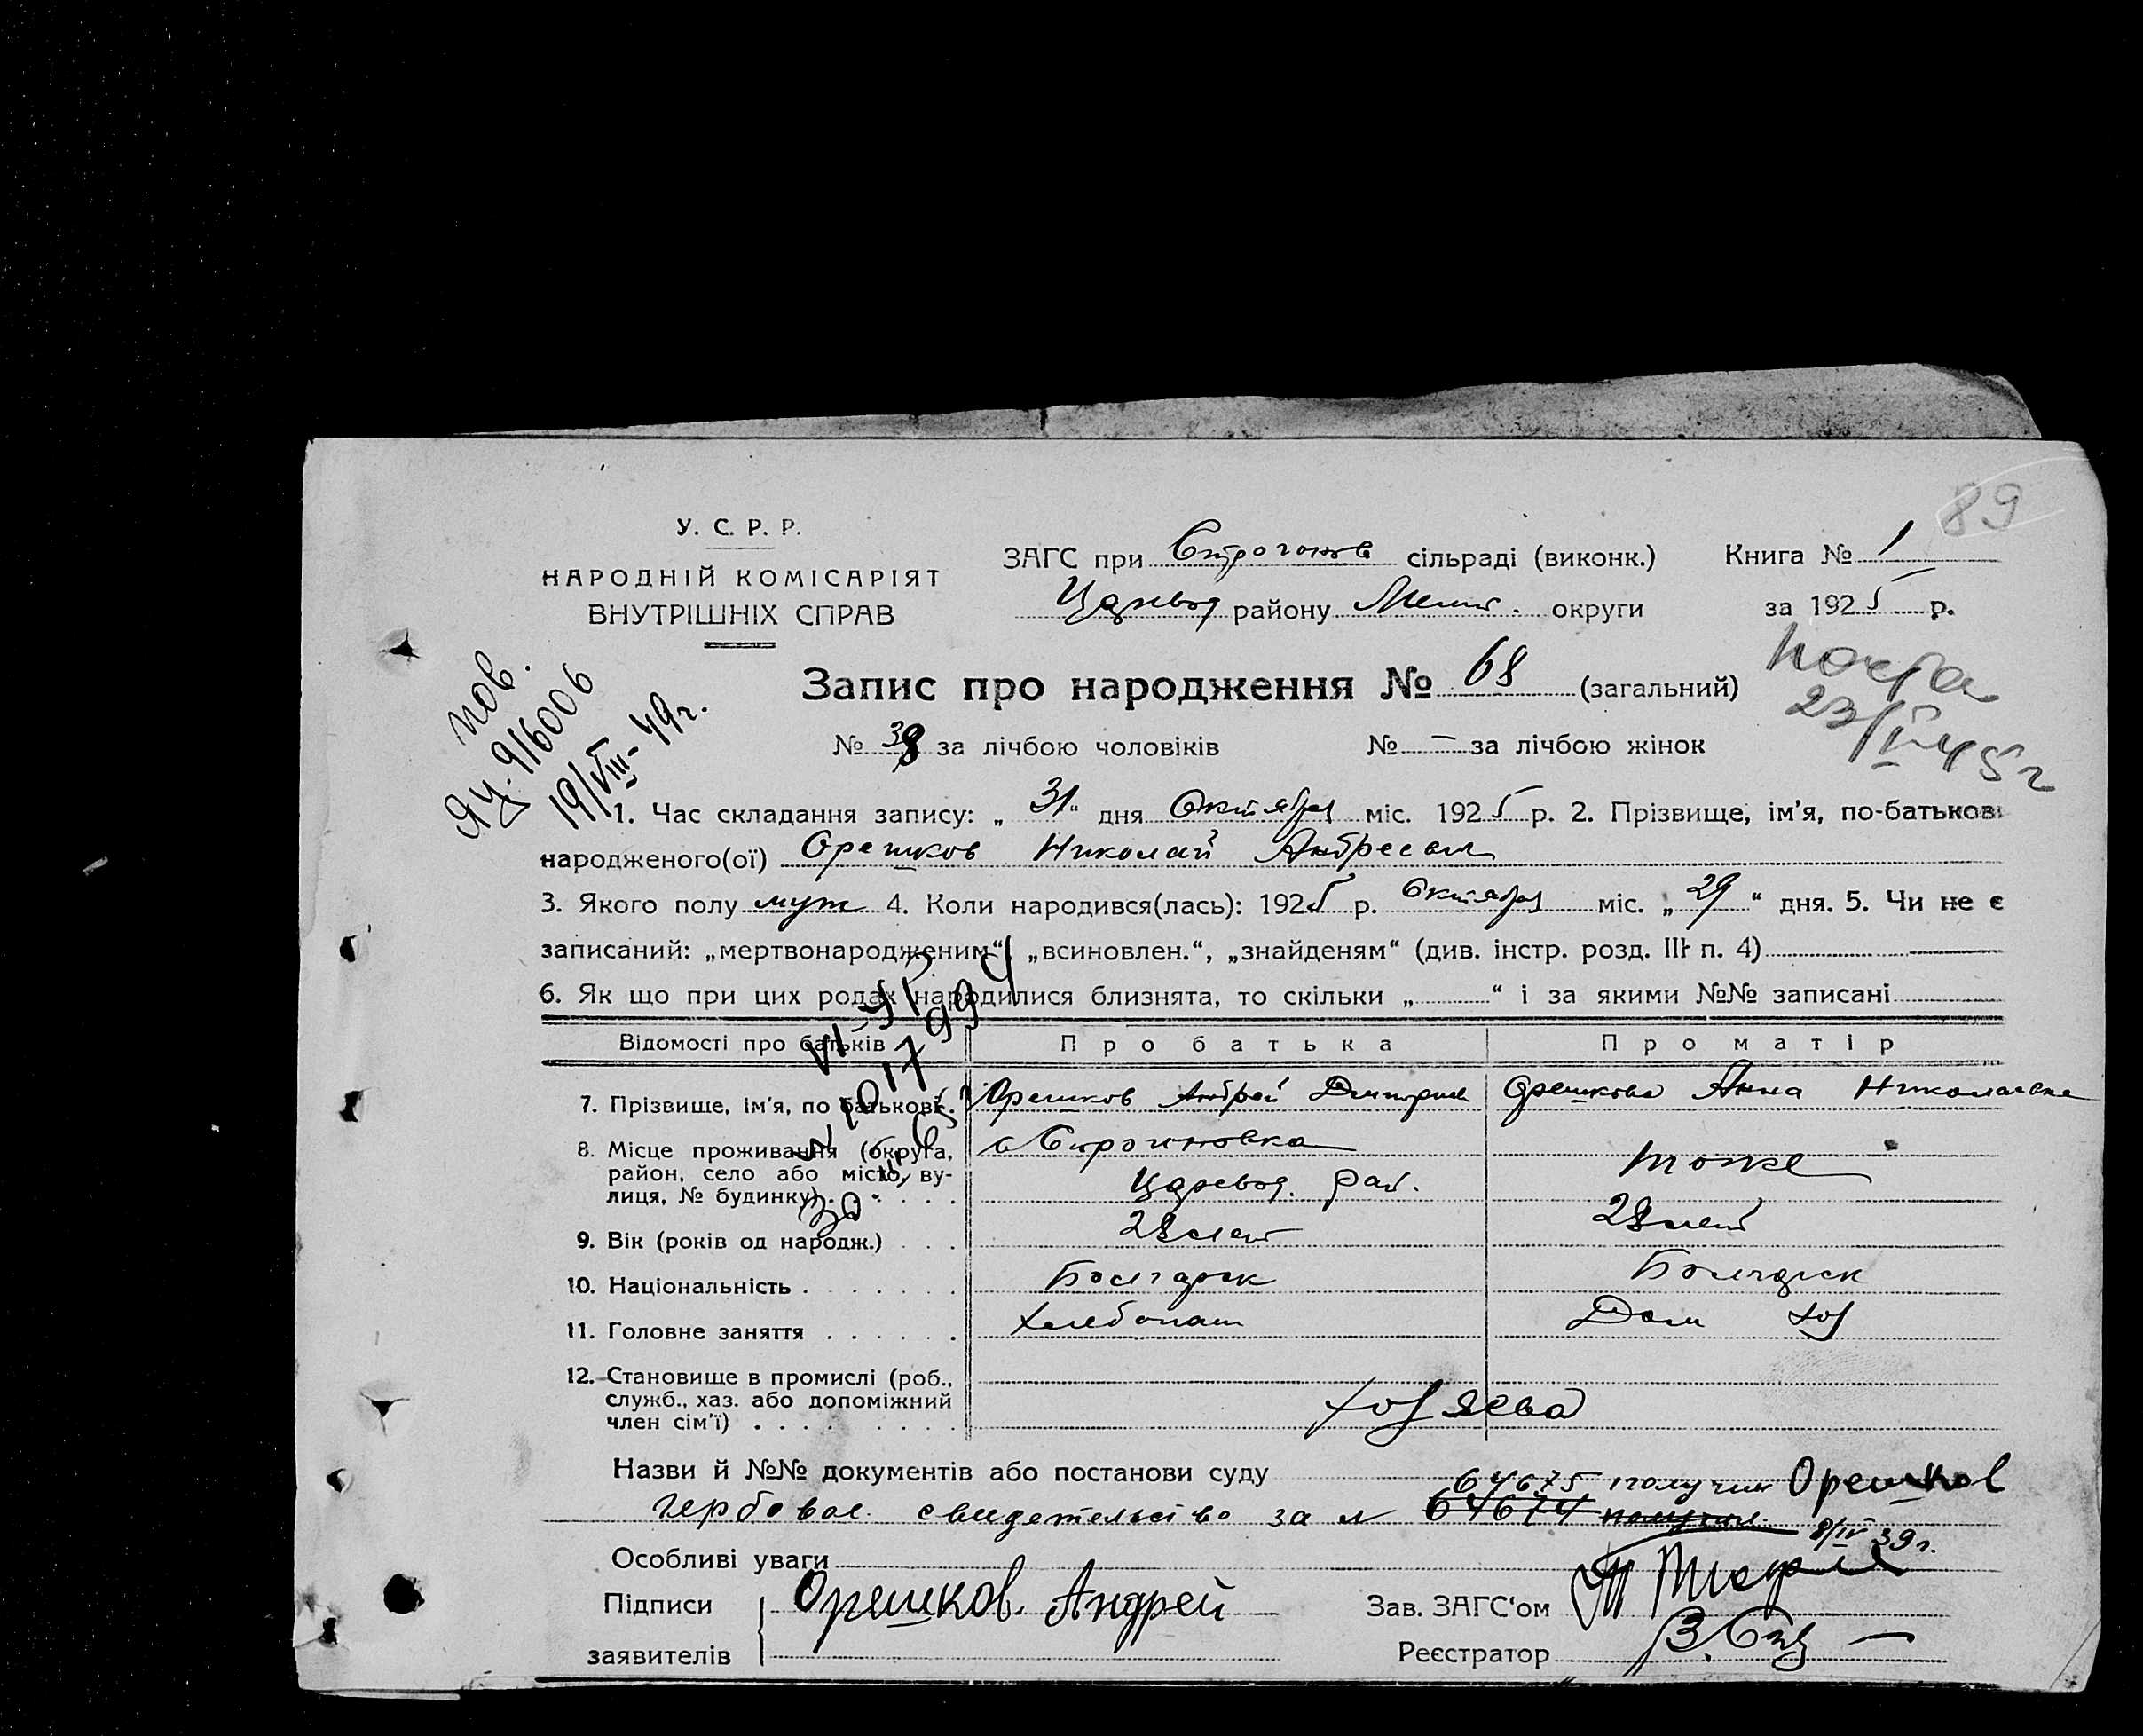 89
У. С. Р. Р.
НАРОДНІЙ КОМІСАРІЯТ
ВНУТРІШНІХ СПРАВ
ЗАГС при Строгонов сільраді (виконк.) Книга № 1
Царевод району Мелит. округи за 1925 р.
Запис про народження № 68 (загальний)
почта
23/II-45 г
пов.
ЯЦ. 916006
19/VIII-49г.
№ 38 за лічбою чоловіків № — за лічбою жінок
1. Час складання запису: „31“ дня Октября міс. 1925 р. 2. Прізвище, ім'я, по-батькові
народженого(ої) Орешков Николай Андреевич
3. Якого полу муж 4. Коли народився(лась): 1925 р. Октября міс. „29“ дня. 5. Чи не є
записаний: „мертвонародженим“, „всиновлен.“, „знайденям“ (див. інстр. розд. III п. 4)
6. Як що при цих родах народилися близнята, то скільки „ “ і за якими №№ записані
Відомості про батьків Про батька Про матір
7. Прізвище, ім'я, по батькові. Орешков Андрей Дмитриев Орешкова Анна Николаевна
8. Місце проживання (округа, с Строгоновка тоже
район, село або місто, ву-
лиця, № будинку) . . . . . Царевод. рай.
9. Вік (років од народж.) . . . 28 лет 28 лет
10. Національність . . . . . . . Болгарск Болгарск
11. Головне заняття . . . . . . Хлебопаш Дом хоз
12. Становище в промислі (роб.,
служб., хаз. або допоміжний хозяева
член сім'ї) . . . . . . . . .
Назви й №№ документів або постанови суду 64675 получил Орешков
гербовое свидетельство за № 64674 получил
8/IV 39 г.
Особливі уваги
Підписи Орешков Андрей Зав. ЗАГС'ом
заявителів Реєстратор